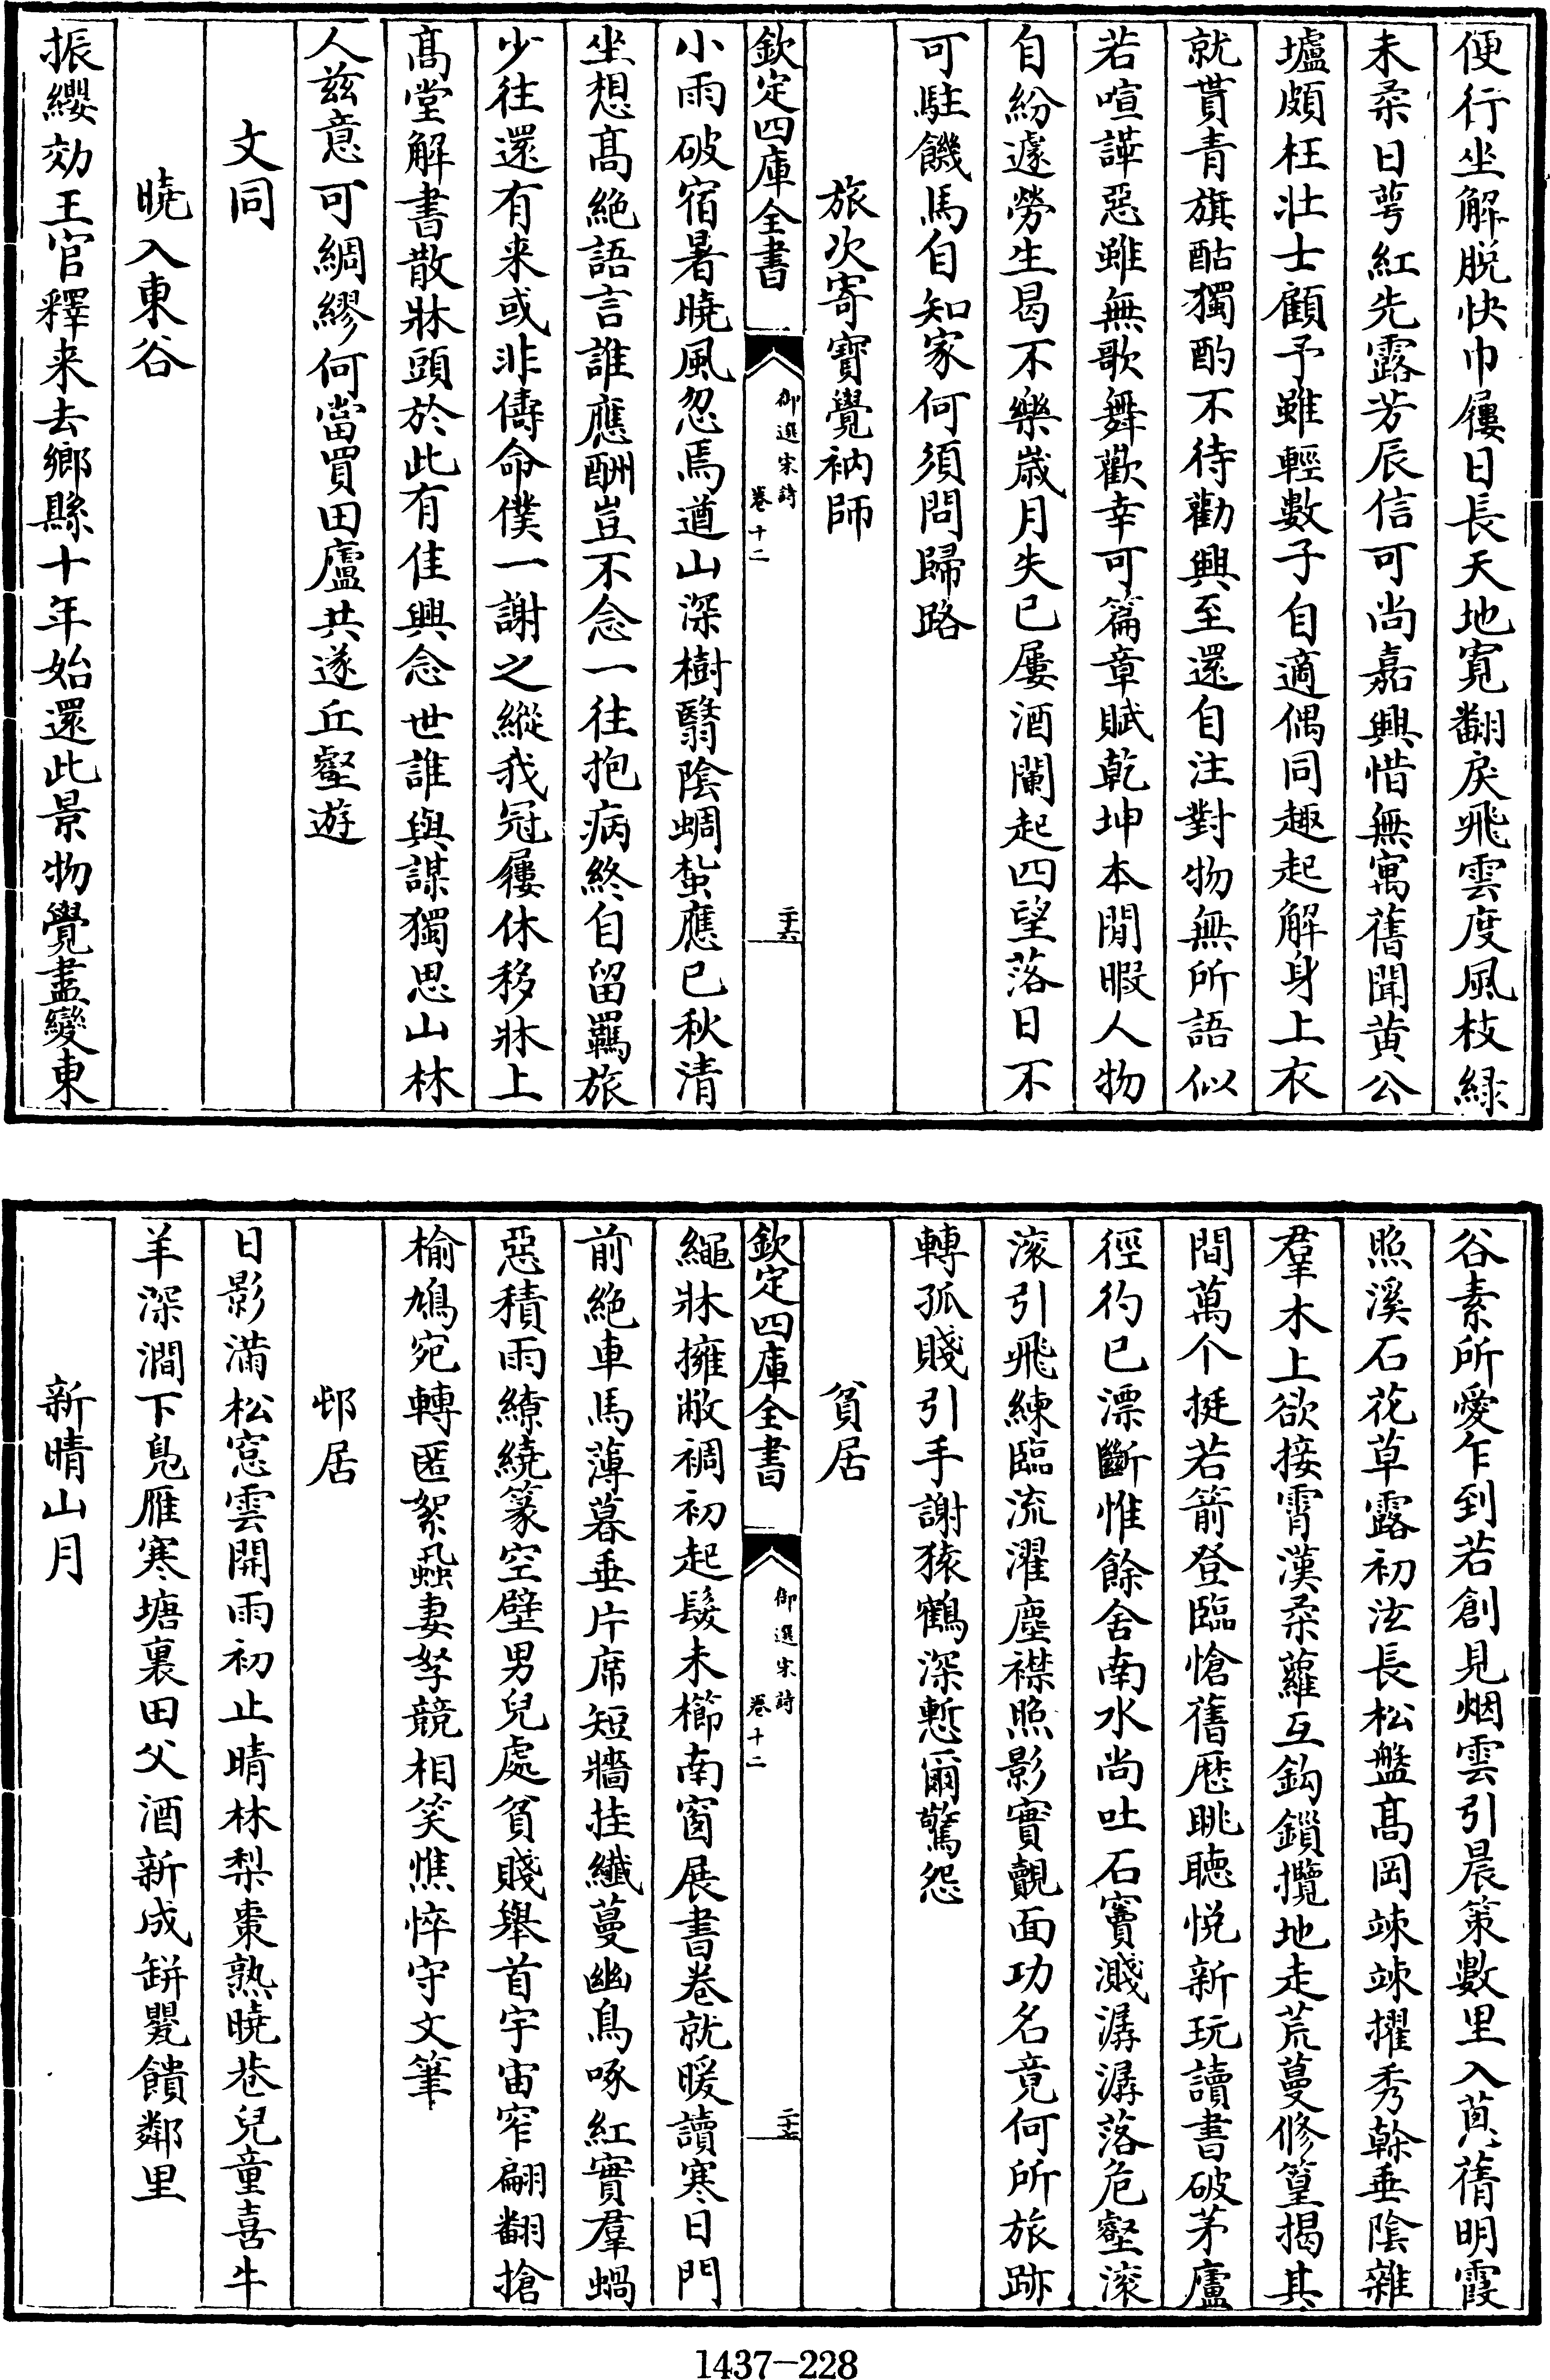 便行坐解脱快巾屨日長天地寛翻戾飛雲度風枝緑
未柔日萼紅先露芳辰信可尚嘉興惜無寓舊聞黄公
壚頗枉壯士顧予雖輕數子自適偶同趣起解身上衣
就貰青旗酤獨酌不待勸興至還自注對物無所語似
若喧譁惡雖無歌舞歡幸可篇章賦乾坤本閒暇人物
自紛遽勞生曷不樂歳月失已屢酒闌起四望落日不
可駐饑馬自知家何須問歸路
旅次寄寶覺衲師
欽定四庫全書
御選宋詩
卷十二
二十六
小雨破宿暑曉風忽焉遒山深樹翳陰蜩蛰應已秋清
坐想髙絶語言誰應酬豈不念一往抱病終自留羈旅
少往還有来或非儔命僕一謝之縱我冠屨休移牀上
髙堂解書散牀頭於此有佳興念世誰與謀獨思山林
人兹意可綢繆何當買田廬共遂丘壑遊
文同
曉入東谷
振纓効王官釋来去鄉縣十年始還此景物覺盡變東
谷素所愛乍到若創見烟雲引晨策數里入葱蒨明霞
照溪石花草露初泫長松盤髙岡竦竦擢秀榦垂陰雜
羣木上欲接霄漢柔蘿互鈎鎻攬地走荒蔓修篁揭其
間萬个挺若箭登臨愴舊歴眺聴悦新玩讀書破茅廬
徑彴已漂斷惟餘舍南水尚吐石竇濺潺潺落危壑滚
滚引飛練臨流濯塵襟照影實靦面功名竟何所旅跡
轉孤賤引手謝猿鶴深慙爾驚怨
貧居
欽定四庫全書
御選宋詩
卷十二
二十七
繩牀擁敝裯初起髮未櫛南窗展書卷就暖讀寒日門
前絶車馬薄暮垂片席短牆挂纖蔓幽鳥啄紅實羣蝸
惡積雨繚繞篆空壁男兒處貧賤舉首宇宙窄翩翻搶
榆鳩宛轉匿絮蝨妻孥競相笑憔悴守文筆
邨居
日影滿松窓雲開雨初止晴林梨棗熟曉巷兒童喜牛
羊深澗下鳬雁寒塘裏田父酒新成缾甖饋鄰里
新晴山月
1437-228